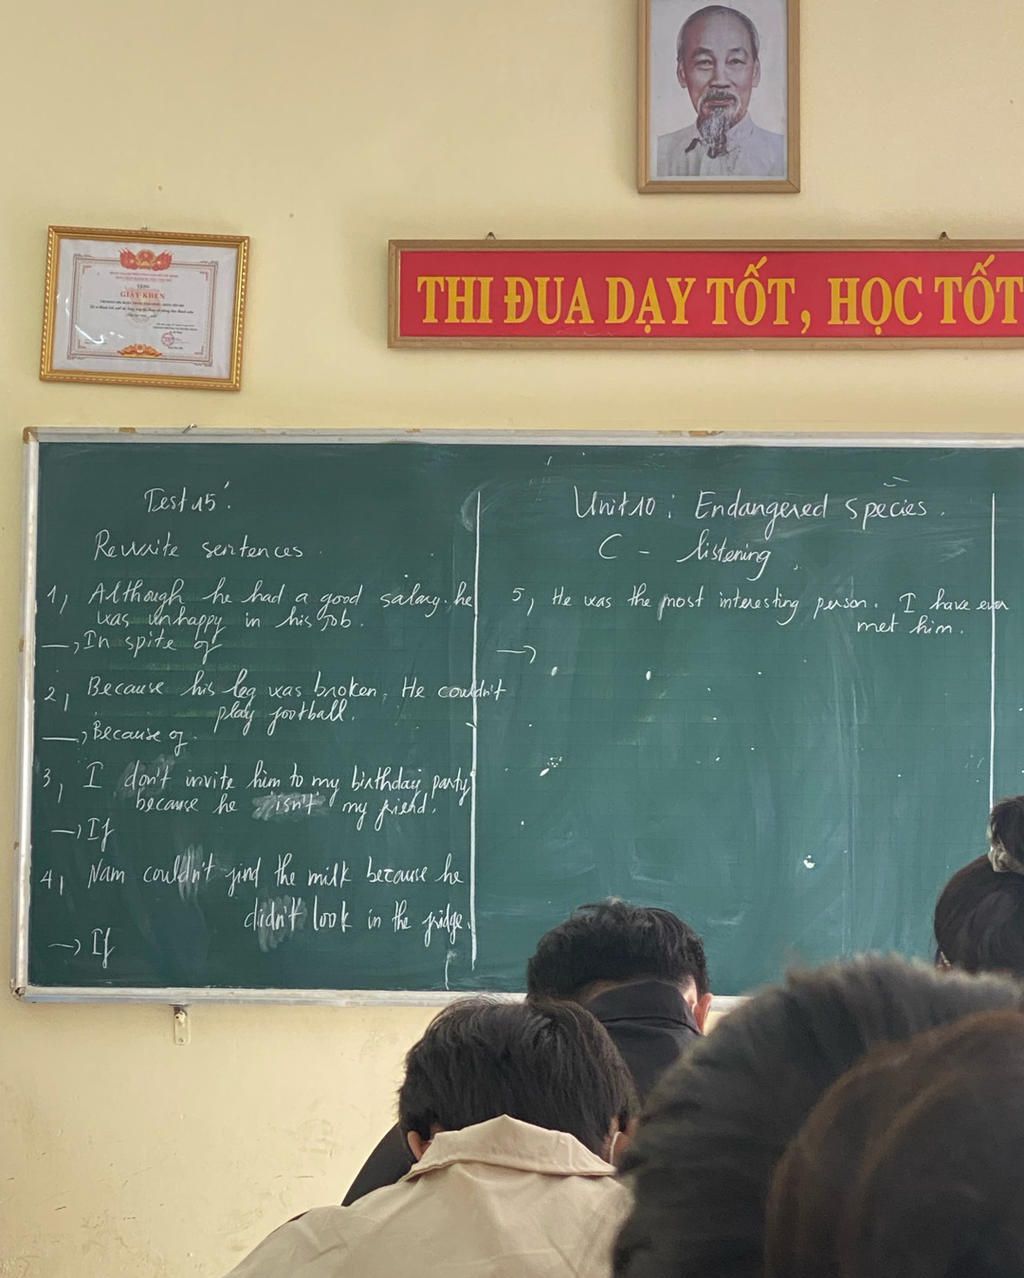 GIẤY KHEN
THI ĐUA DẠY TỐT, HỌC TỐT
Test 15:
Rewrite sentences
1, Although he had a good salary. he
was unhappy in his job.
→ In spite of
2, Because his leg was broken, He couldn't
play football.
→ Because of.
3, I don't invite him to my birthday party
because he isn't my friend.
→ If
4, Nam couldn't find the milk because he
didn't look in the fridge.
→ If
Unit 10: Endangered species.
C - listening
5, He was the most interesting person. I have ever
met him.
→